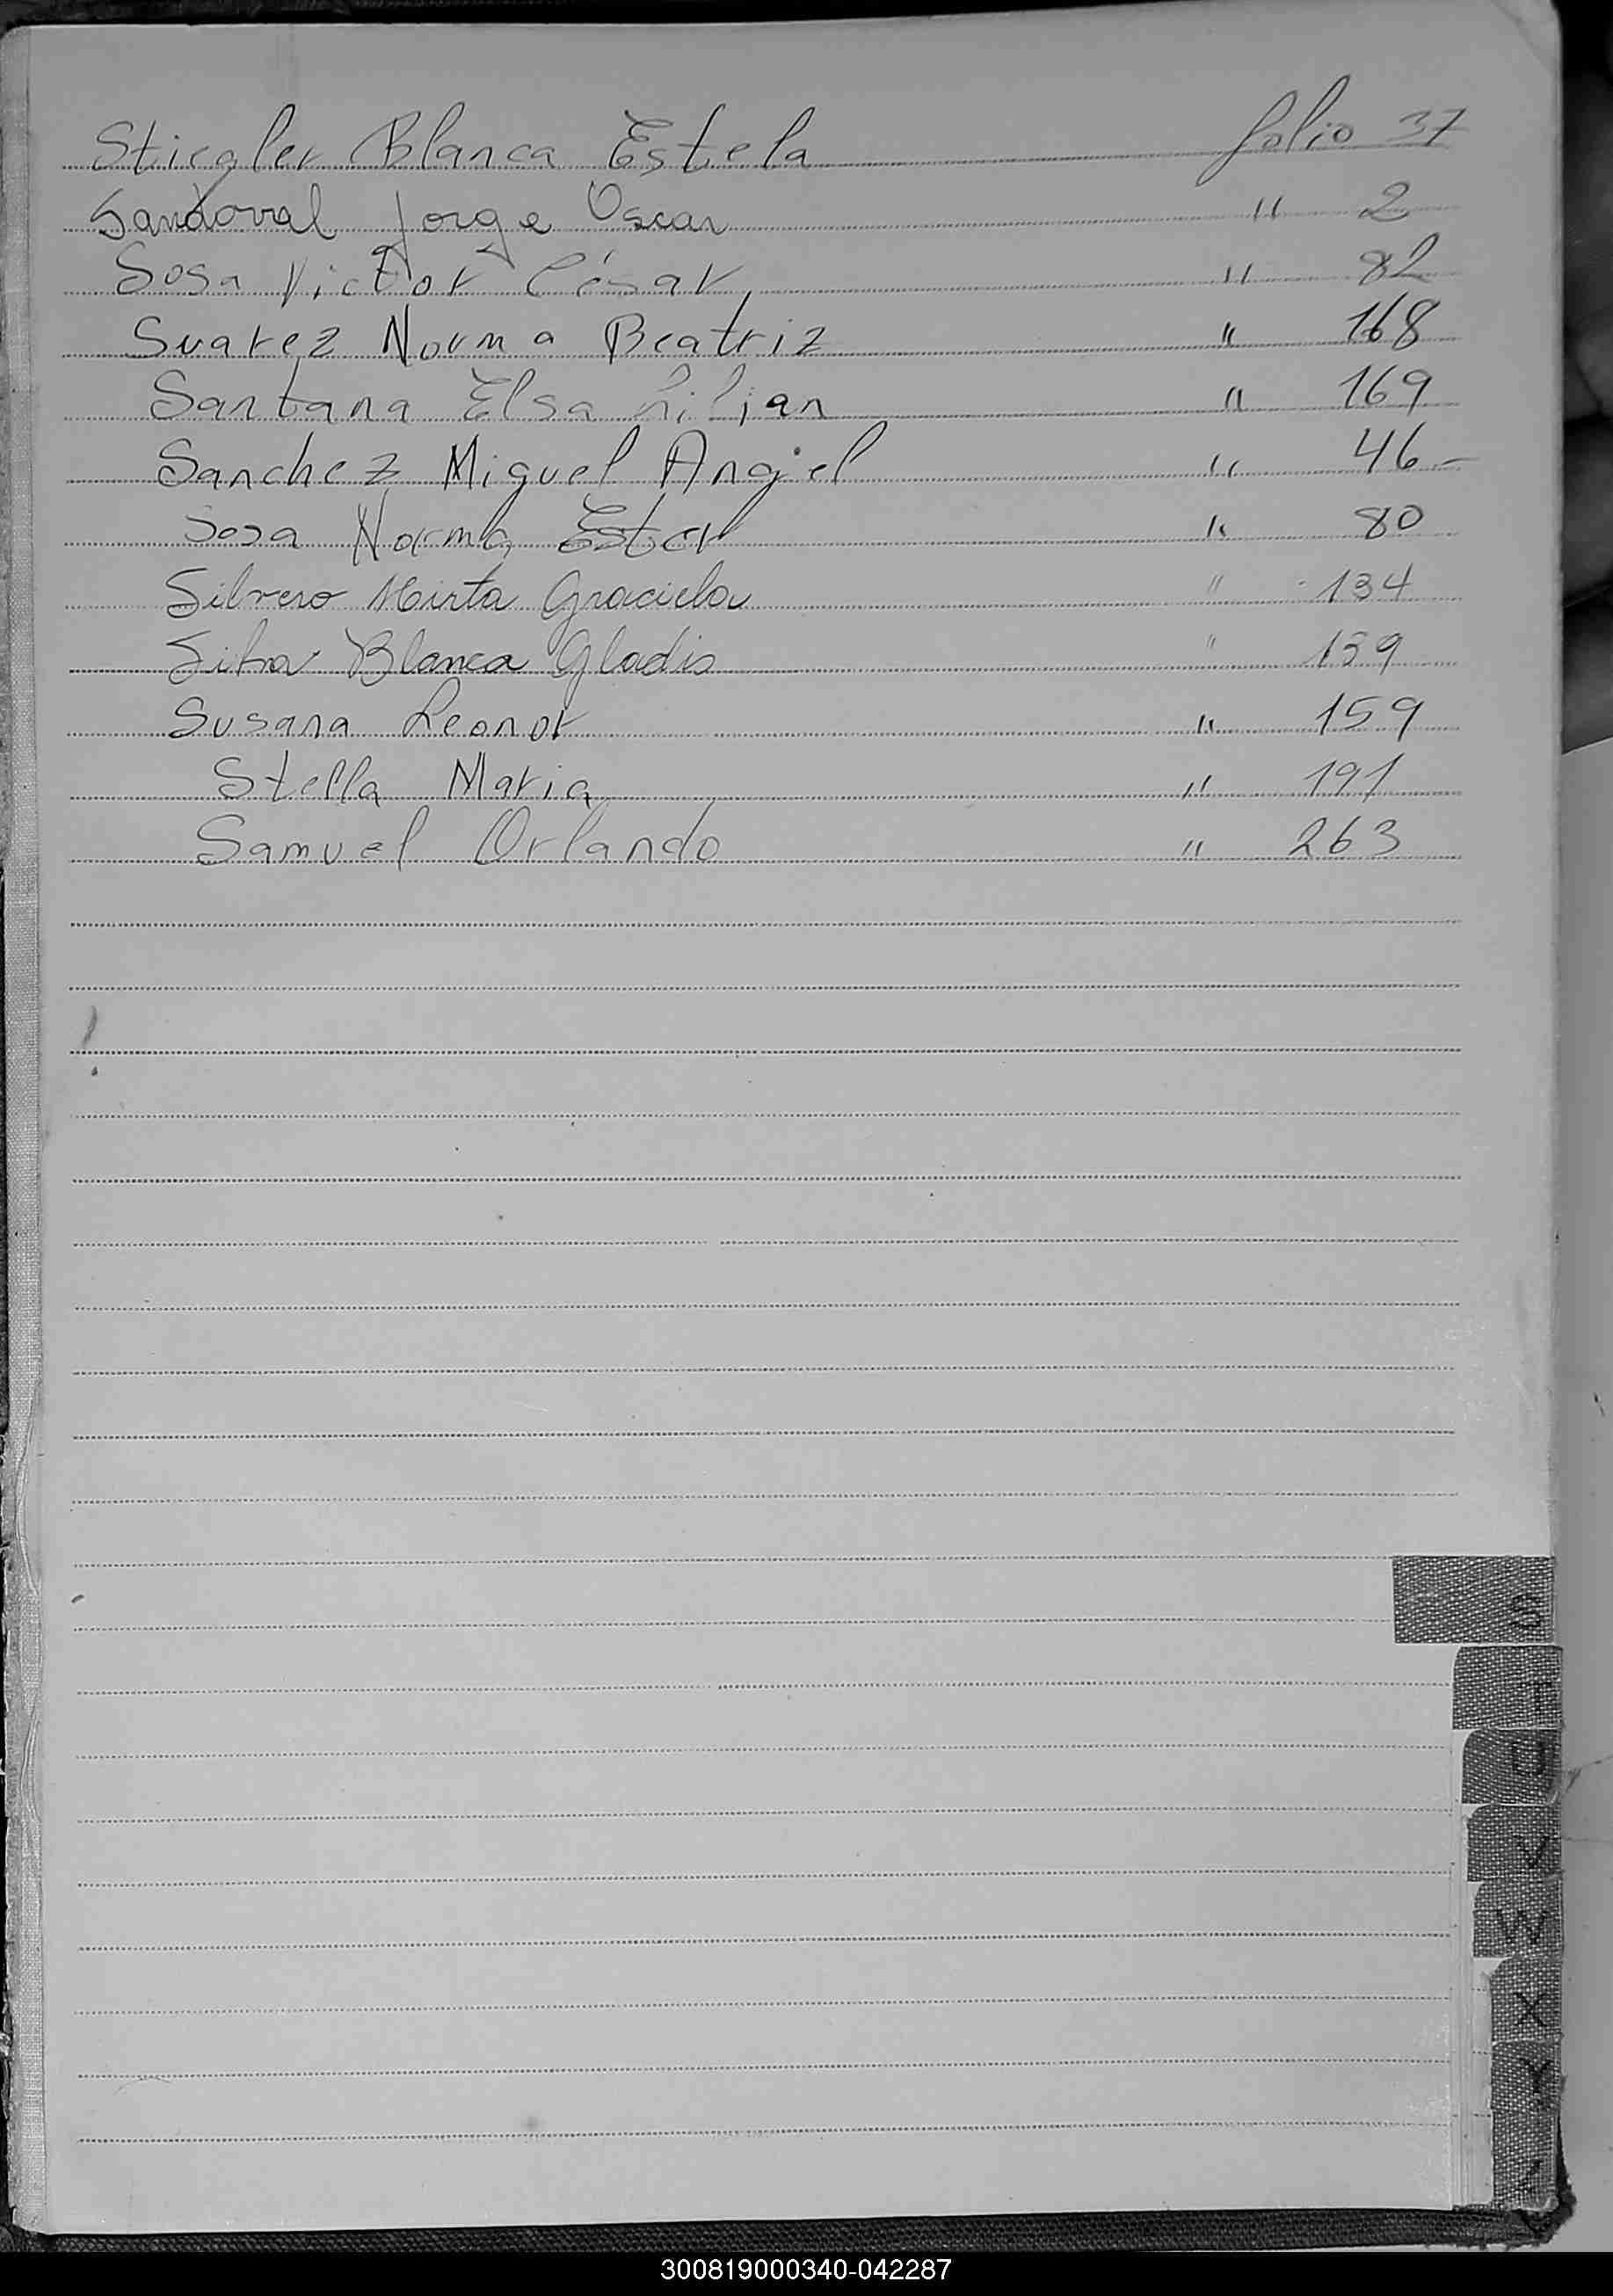 Stiegler Blanca Estela folio 37
Sandoval Jorge Oscar " 2
Sosa Victor César " 82
Suarez Norma Beatriz " 168
Santana Elsa Lilian " 169
Sanchez Miguel Angel " 46-
Sosa Norma Ester " 80
Silvero Mirta Graciela " 134
Silva Blanca Gladis " 139
Susana Leonor " 159
Stella Maria " 191
Samuel Orlando " 263
S
T
U
V
W
X
Y
300819000340-042287